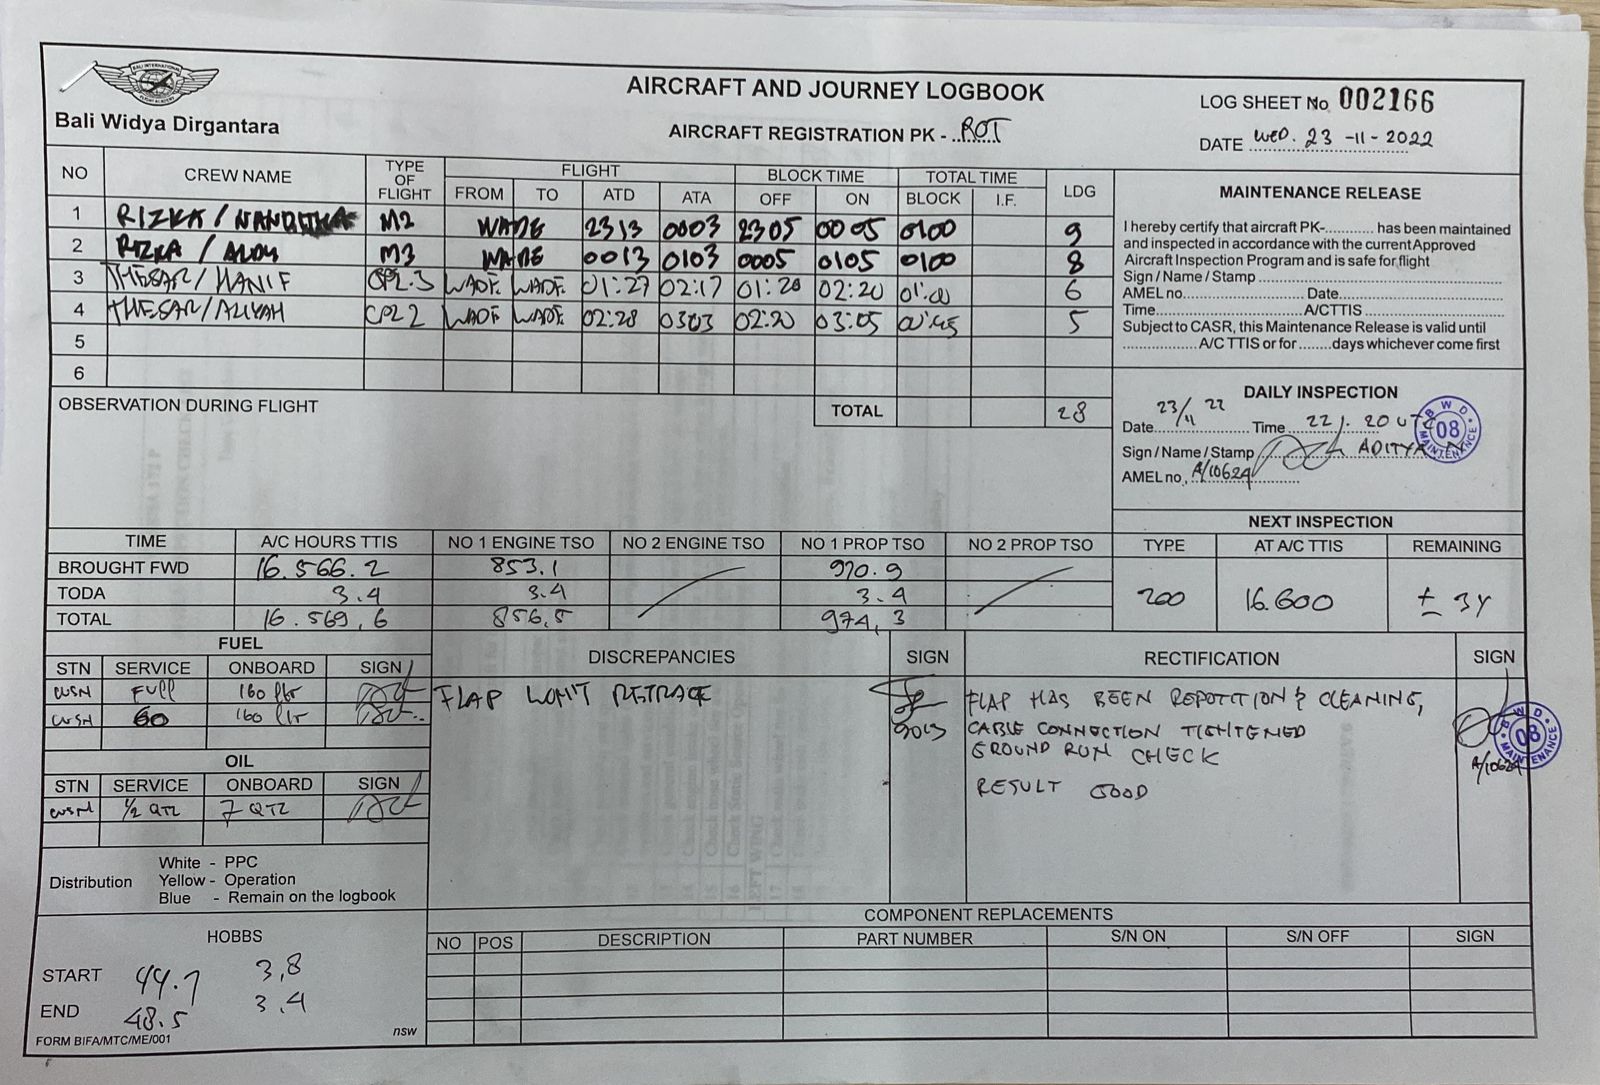 BALI INTERNATIONAL
FLIGHT ACADEMY
Bali Widya Dirgantara
AIRCRAFT AND JOURNEY LOGBOOK
AIRCRAFT REGISTRATION PK - ROT
LOG SHEET No. 002166
DATE WED. 23 -11- 2022
NO CREW NAME TYPE OF FLIGHT FLIGHT BLOCK TIME TOTAL TIME LDG
FROM TO ATD ATA OFF ON BLOCK I.F.
1 RIZKA / M2 WADE 2313 0003 2305 0005 0100 9
2 RIZKA / M3 WADE 0013 0103 0005 0105 0100 8
3 THESAR/HANIF CPL.3 WADE. WADE. 01:27 02:17 01:20 02:20 01:00 6
4 THESAR/ALIYAH CPL 2 WADE WADE. 02:28 0303 02:20 03:05 00:45 5
5
6
OBSERVATION DURING FLIGHT
TOTAL 28
MAINTENANCE RELEASE
I hereby certify that aircraft PK-............ has been maintained
and inspected in accordance with the current Approved
Aircraft Inspection Program and is safe for flight
Sign / Name / Stamp
AMEL no. Date
Time A/CTTIS
Subject to CASR, this Maintenance Release is valid until
A/C TTIS or for ........days whichever come first
DAILY INSPECTION
Date 23/11 22 Time 22.20 UTC
Sign / Name / Stamp ADITYA
AMEL no, A/10624
BWD 08 MAINTENANCE
NEXT INSPECTION
TYPE AT A/C TTIS REMAINING
200 16.600 ± 34
TIME A/C HOURS TTIS NO 1 ENGINE TSO NO 2 ENGINE TSO NO 1 PROP TSO NO 2 PROP TSO
BROUGHT FWD 16.566.2 853.1 970.9
TODA 3.4 3.4 3.4
TOTAL 16.569,6 856,5 974,3
FUEL
STN SERVICE ONBOARD SIGN
WSN FULL 160 ltr
WSN 60 160 ltr
OIL
STN SERVICE ONBOARD SIGN
WSN 1/2 QTZ 7 QTZ
DISCREPANCIES SIGN
FLAP WON'T RETRACK
RECTIFICATION SIGN
FLAP HAS BEEN REPOTITION & CLEANING,
CABLE CONNECTION TIGHTENED
GROUND RUN CHECK
RESULT GOOD
BWD 08 MAINTENANCE
A/10624
Distribution
White - PPC
Yellow - Operation
Blue - Remain on the logbook
HOBBS
START 44.7 3,8
END 48.5 3.4
FORM BIFA/MTC/ME/001
nsw
COMPONENT REPLACEMENTS
NO POS DESCRIPTION PART NUMBER S/N ON S/N OFF SIGN